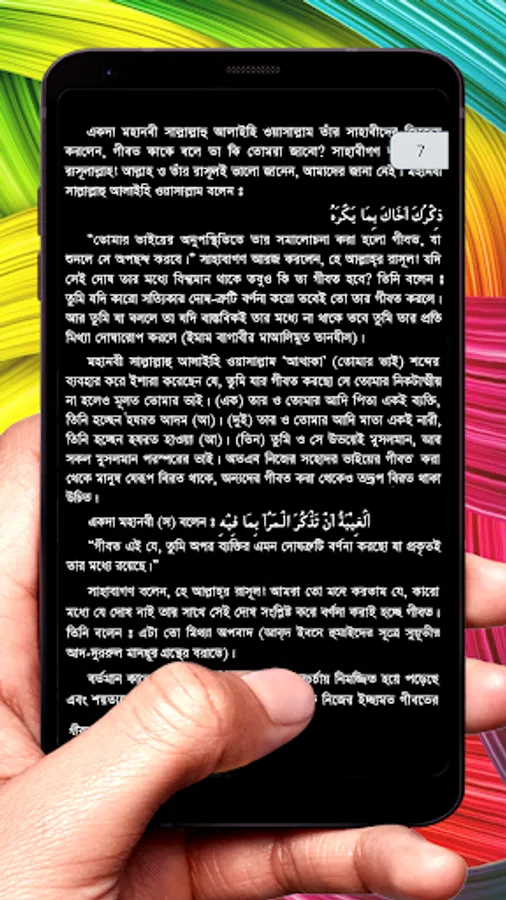 একদা মহানবী সাল্লাল্লাহু আলাইহি ওয়াসাল্লাম তাঁর সাহাবীদের
করলেন, গীবত কাকে বলে তা কি তোমরা জানো? সাহাবীগণ
7
রাসূলাল্লাহ! আল্লাহ ও তাঁর রাসূলই ভালো জানেন, আমাদের জানা নেই। মহানবী
সাল্লাল্লাহু আলাইহি ওয়াসাল্লাম বলেন ঃ
ذِكْرُكَ اَخَاكَ بِمَا يَكْرَهُ
“তোমার ভাইয়ের অনুপস্থিতিতে তার সমালোচনা করা হলো গীবত, যা
শুনলে সে অপছন্দ করবে।” সাহাবাগণ আরজ করলেন, হে আল্লাহ্‌র রাসূল! যদি
সেই দোষ তার মধ্যে বিদ্যমান থাকে তবুও কি তা গীবত হবে? তিনি বলেন ঃ
তুমি যদি কারো সত্যিকার দোষ-ত্রুটি বর্ণনা করো তবেই তো তার গীবত করলে।
আর তুমি যা বললে তা যদি বাস্তবিকই তার মধ্যে না থাকে তবে তুমি তার প্রতি
মিথ্যা দোষারোপ করলে (ইমাম বাগাবীর মাআলিমুত তানযীল)।
মহানবী সাল্লাল্লাহু আলাইহি ওয়াসাল্লাম ‘আখাকা’ (তোমার ভাই) শব্দের
ব্যবহার করে ইশারা করেছেন যে, তুমি যার গীবত করছো সে তোমার নিকটাত্মীয়
না হলেও মূলত তোমার ভাই। (এক) তার ও তোমার আদি পিতা একই ব্যক্তি,
তিনি হচ্ছেন হযরত আদম (আ)। (দুই) তার ও তোমার আদি মাতা একই নারী,
তিনি হচ্ছেন হযরত হাওয়া (আ)। (তিন) তুমি ও সে উভয়েই মুসলমান, আর
সকল মুসলমান পরস্পরের ভাই। অতএব নিজের সহোদর ভাইয়ের গীবত করা
থেকে মানুষ যেরূপ বিরত থাকে, অন্যদের গীবত করা থেকেও তদ্রূপ বিরত থাকা
উচিত।
একদা মহানবী (স) বলেন ঃ اَلْغِيْبَةُ اَنْ تَذْكُرَ الْمَرْأَ بِمَا فِيْهِ
“গীবত এই যে, তুমি অপর ব্যক্তির এমন দোষত্রুটি বর্ণনা করছো যা প্রকৃতই
তার মধ্যে রয়েছে।”
সাহাবাগণ বলেন, হে আল্লাহ্‌র রাসূল! আমরা তো মনে করতাম যে, কারো
মধ্যে যে দোষ নাই তার সাথে সেই দোষ সংশ্লিষ্ট করে বর্ণনা করাই হচ্ছে গীবত।
তিনি বলেন ঃ এটা তো মিথ্যা অপবাদ (আব্‌দ ইবনে হুমাইদের সূত্রে সুয়ূতীর
আদ-দুররুল মানছূর গ্রন্থের বরাতে)।
বর্তমান নিমজ্জিত হয়ে পড়েছে
এবং নিজের ইচ্ছামত গীবতের